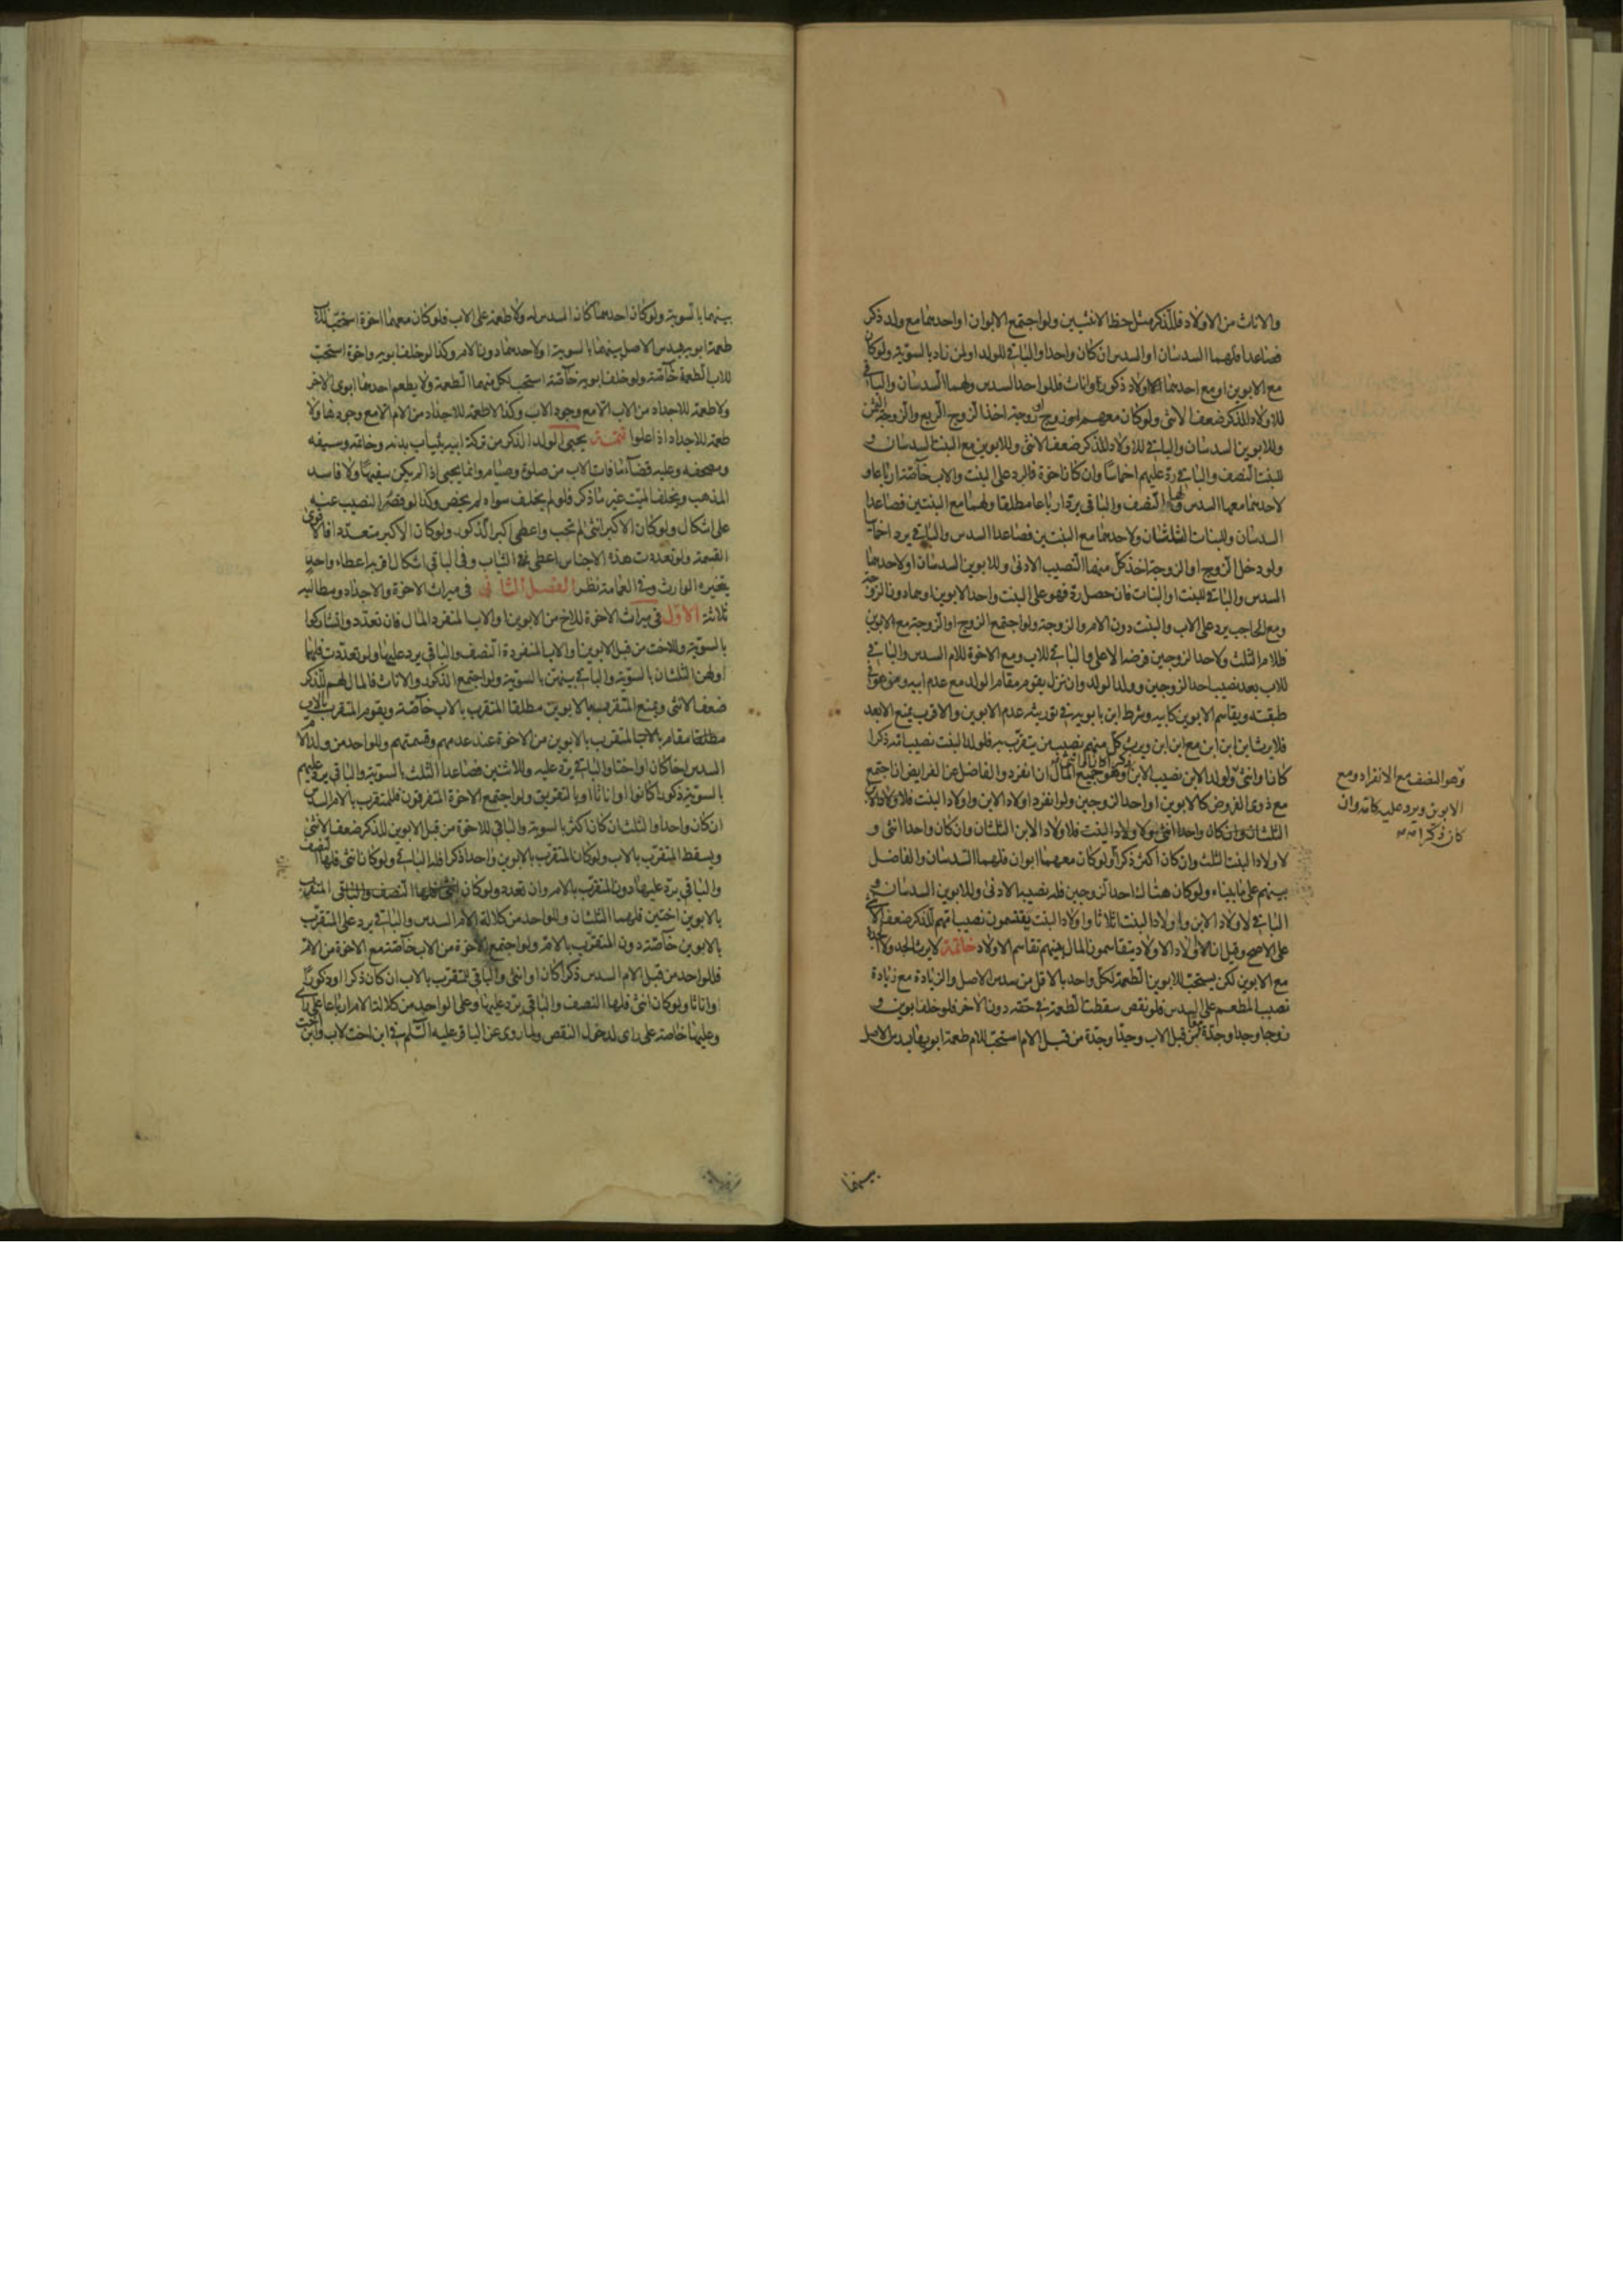 والاناث من الاولاد فللذكر مثل حظ الانثيين ولو اجتمع الابوان او احدهما مع ولد ذكر
فصاعدا فلهما السدسان او السدس ان كان واحدا والباقي للولد او لمن زاد بالسوية ولو كان
مع الابوين او مع احدهما اولاد ذكور واناث فللواحد السدس ولهما السدسان والباقي
للاولاد للذكر ضعف الانثى ولو كان معهم زوج او زوجة اخذ الزوج الربع والزوجة الثمن
وللابوين السدسان والباقي للاولاد للذكر ضعف الانثى وللابوين مع البنت السدسان و
للبنت النصف والباقي رد عليهم اخماسا وان كان اخوة فالرد على البنت والاب خاصة ارباعا و
لاحدهما معها السدس ولها النصف والباقي يرد ارباعا مطلقا ولهما مع البنتين فصاعدا
السدسان وللبنات الثلثان ولاحدهما مع البنتين فصاعدا السدس والباقي يرد اخماسا
ولو دخل الزوج او الزوجة اخذ كل منهما النصيب الادنى وللابوين السدسان او لاحدهما
السدس والباقي للبنت او البنات فان حصل رد فهو على البنت واحد الابوين او هما دون الزوجة
ومع الحاجب يرد على الاب والبنت دون الام والزوجة ولو اجتمع الزوج او الزوجة مع الابوين
فللام الثلث ولاحد الزوجين فرضه الاعلى والباقي للاب ومع الاخوة للام السدس والباقي
للاب بعد نصيب احد الزوجين وولد الولد وان نزل يقوم مقام الولد مع عدم ابيه ومن هو في
طبقته ويقاسم الابوين كابيه وشرط ابن بابويه في توريثه عدم الابوين والاقرب يمنع الابعد
فلا يرث ابن ابن ابن مع ابن ابن ويرث كل منهم نصيب من يتقرب به فلولد البنت نصيب امه ذكرا
كان او انثى ولولد الابن نصيب الابن وهو جميع المال ان انفرد والفاضل عن الفرايض ان اجتمع
مع ذوى الفروض كالابوين او احد الزوجين ولو انفرد اولاد الابن واولاد البنت فلاولاد الابن
الثلثان وان كان واحدا انثى ولاولاد البنت فلاولاد الابن الثلثان وان كان واحدا انثى و
لاولاد البنت الثلث وان كان اكثر ذكرا ولو كان معهما ابوان فلهما السدسان والفاضل
بينهم على ما بيناه ولو كان هناك احد الزوجين فله نصيبه الادنى وللابوين السدسان و
الباقي لاولاد الابن واولاد البنت اثلاثا واولاد البنت يقتسمون نصيب امهم للذكر ضعف الانثى
على الاصح وقيل ان اولاد الاولاد يتقاسمون المال بينهم تقاسم الاولاد خاتمة لا يرث الجد ولا الجدة
مع الابوين لكن يستحب للابوين الطعمة لكل واحد بالاقل من سدس الاصل والزيادة مع زيادة
نصيب المطعم على السدس فلو نقص سقطت الطعمة في حقه دون الاخر فلو خلف ابوين و
زوجا وجدا وجدة من قبل الاب وجدا وجدة من قبل الام استحب للام طعمة ابويها بسدس الاصل
بينهما
وهو النصف مع الانفراد ومع
الابوين ويرد عليه كامه وان
كان ذكرا
بينهما بالسوية ولو كان احدهما كان السدس له ولا طعمة على الاب فلو كان معهما اخوة استحب للاب
طعمة ابويه بسدس الاصل بينهما بالسوية او لاحدهما دون الام وكذا لو خلف ابويه واخوة استحب
للاب الطعمة خاصة ولو خلف ابويه خاصة استحب لكل منهما الطعمة ولا يطعم احدهما ابوى الاخر
ولا طعمة للاجداد من الاب الا مع وجود الاب وكذا لا طعمة للاجداد من الام الا مع وجودها ولا
طعمة للاجداد اذا علوا تتمة يحبى الولد الذكر من تركة ابيه بثياب بدنه وخاتمه وسيفه
ومصحفه وعليه قضاء ما فات الاب من صلوة وصيام وانما يحبى اذا لم يكن سفيها ولا فاسد
المذهب ويخلف الميت غير ما ذكر فلو لم يخلف سواه لم يخص وكذا لو قصر النصيب عنه
على اشكال ولو كان الاكبر انثى لم تحب واعطى اكبر الذكور ولو كان الاكبر متعددا فالاقوى
القسمة ولو تعددت هذه الاجناس اعطى الثياب وفى الباقي اشكال اقربه اعطاء واحد
يتخيره الوارث وفي العمامة نظر الفصل الثاني في ميراث الاخوة والاجداد ومطالبه
ثلاثة الاول في ميراث الاخوة للاخ من الابوين او الاب المنفرد المال فان تعدد وا تشاركوا
بالسوية وللاخت من قبل الابوين او الاب المنفردة النصف والباقي يرد عليها ولو تعددت فلهما
او لهن الثلثان بالسوية والباقي بينهن بالسوية ولو اجتمع الذكور والاناث فالمال لهم للذكر
ضعف الانثى ويمنع المتقرب بالابوين مطلقا المتقرب بالاب خاصة ويقوم المتقرب بالاب
مطلقا مقام المتقرب بالابوين من الاخوة عند عدمهم وقسمتهم وللواحد من ولد الام
السدس اخا كان او اختا والباقي يرد عليه وللاثنين فصاعدا الثلث بالسوية والباقي يرد عليهم
بالسوية ذكورا كانوا او اناثا او بالتفريق ولو اجتمع الاخوة المتفرقون فللمتقرب بالام السدس
ان كان واحدا والثلث ان كان اكثر بالسوية والباقي للاخوة من قبل الابوين للذكر ضعف الانثى
ويسقط المتقرب بالاب ولو كان المتقرب بالابوين واحدا ذكرا فله الباقي ولو كان انثى فلها النصف
والباقي يرد عليها دون المتقرب بالام وان تعدد ولو كان انثى فلها النصف والباقي المتقرب
بالابوين اختين فلهما الثلثان وللواحد من كلالة الام السدس والباقي يرد على المتقرب
بالابوين خاصة دون المتقرب بالام ولو اجتمع الاخوة من الاب خاصة مع الاخوة من الام
فللواحد من قبل الام السدس ذكرا كان او انثى والباقي للمتقرب بالاب ان كان ذكرا او ذكورا
او اناثا ولو كان انثى فلها النصف والباقي يرد عليها وعلى الواحد من كلالة الام ارباعا على راى
وعليها خاصة على راى لدخول النقص ولما روى عن الباقر عليه السلم في ابن اخت لاب وابن اخت